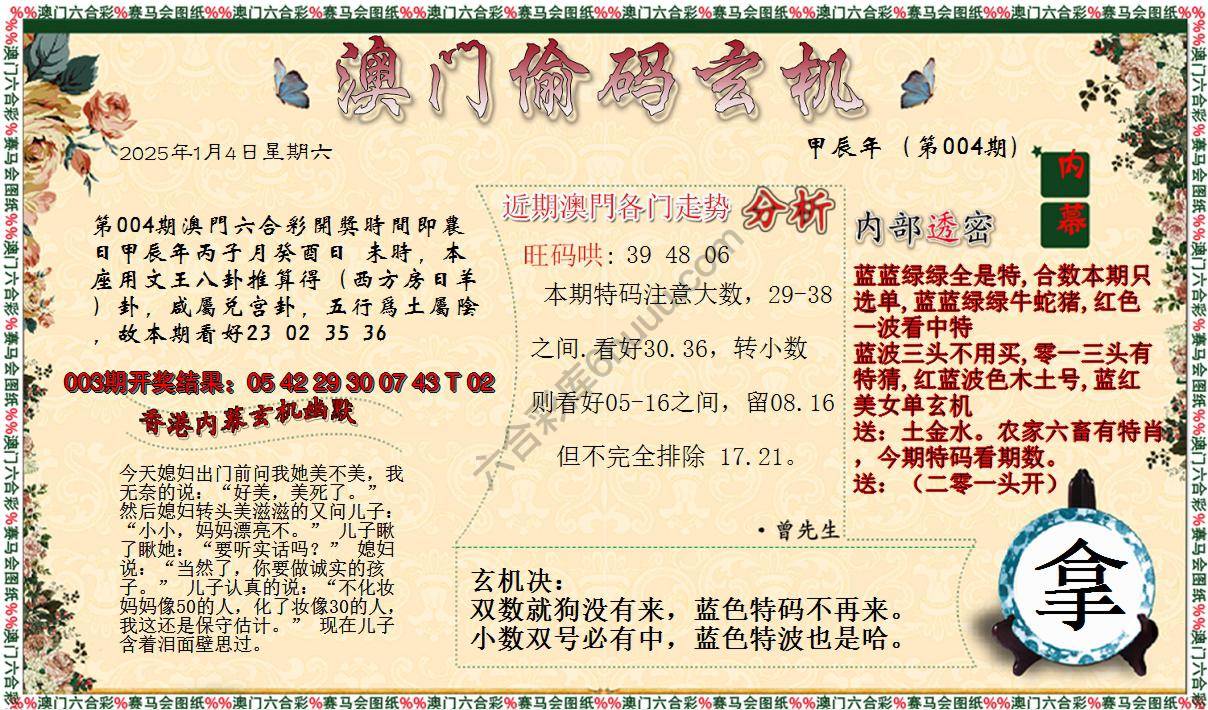 %%澳门六合彩%赛马会图纸%%澳门六合彩%赛马会图纸%%澳门六合彩%赛马会图纸%%澳门六合彩%赛马会图纸%%澳门六合彩%赛马会图纸%%澳门六合彩%赛马会图纸%%
澳门偷码玄机
2025年1月4日星期六
甲辰年（第004期）
内
幕
第004期澳門六合彩開獎時間即農
日甲辰年丙子月癸酉日 未時，本
座用文王八卦推算得（西方房日羊
）卦，咸屬兑宫卦，五行爲土屬陰
，故本期看好23 02 35 36
003期开奖结果：05 42 29 30 07 43 T 02
香港内幕玄机幽默
今天媳妇出门前问我她美不美，我
无奈的说：“好美，美死了。”
然后媳妇转头美滋滋的又问儿子：
“小小，妈妈漂亮不。” 儿子瞅
了瞅她：“要听实话吗？” 媳妇
说：“当然了，你要做诚实的孩
子。” 儿子认真的说：“不化妆
妈妈像50的人，化了妆像30的人，
我这还是保守估计。” 现在儿子
含着泪面壁思过。
近期澳門各门走势 分析
旺码哄: 39 48 06
本期特码注意大数，29-38
之间.看好30.36，转小数
则看好05-16之间，留08.16
但不完全排除 17.21。
·曾先生
内部透密
蓝蓝绿绿全是特,合数本期只
选单,蓝蓝绿绿牛蛇猪,红色
一波看中特
蓝波三头不用买,零一三头有
特猜,红蓝波色木土号,蓝红
美女单玄机
送：土金水。农家六畜有特肖
，今期特码看期数。
送：（二零一头开）
玄机决：
双数就狗没有来，蓝色特码不再来。
小数双号必有中，蓝色特波也是哈。
拿
%%澳门六合彩%赛马会图纸%%澳门六合彩%赛马会图纸%%澳门六合彩%赛马会图纸%%澳门六合彩%赛马会图纸%%澳门六合彩%赛马会图纸%%澳门六合彩%赛马会图纸%%